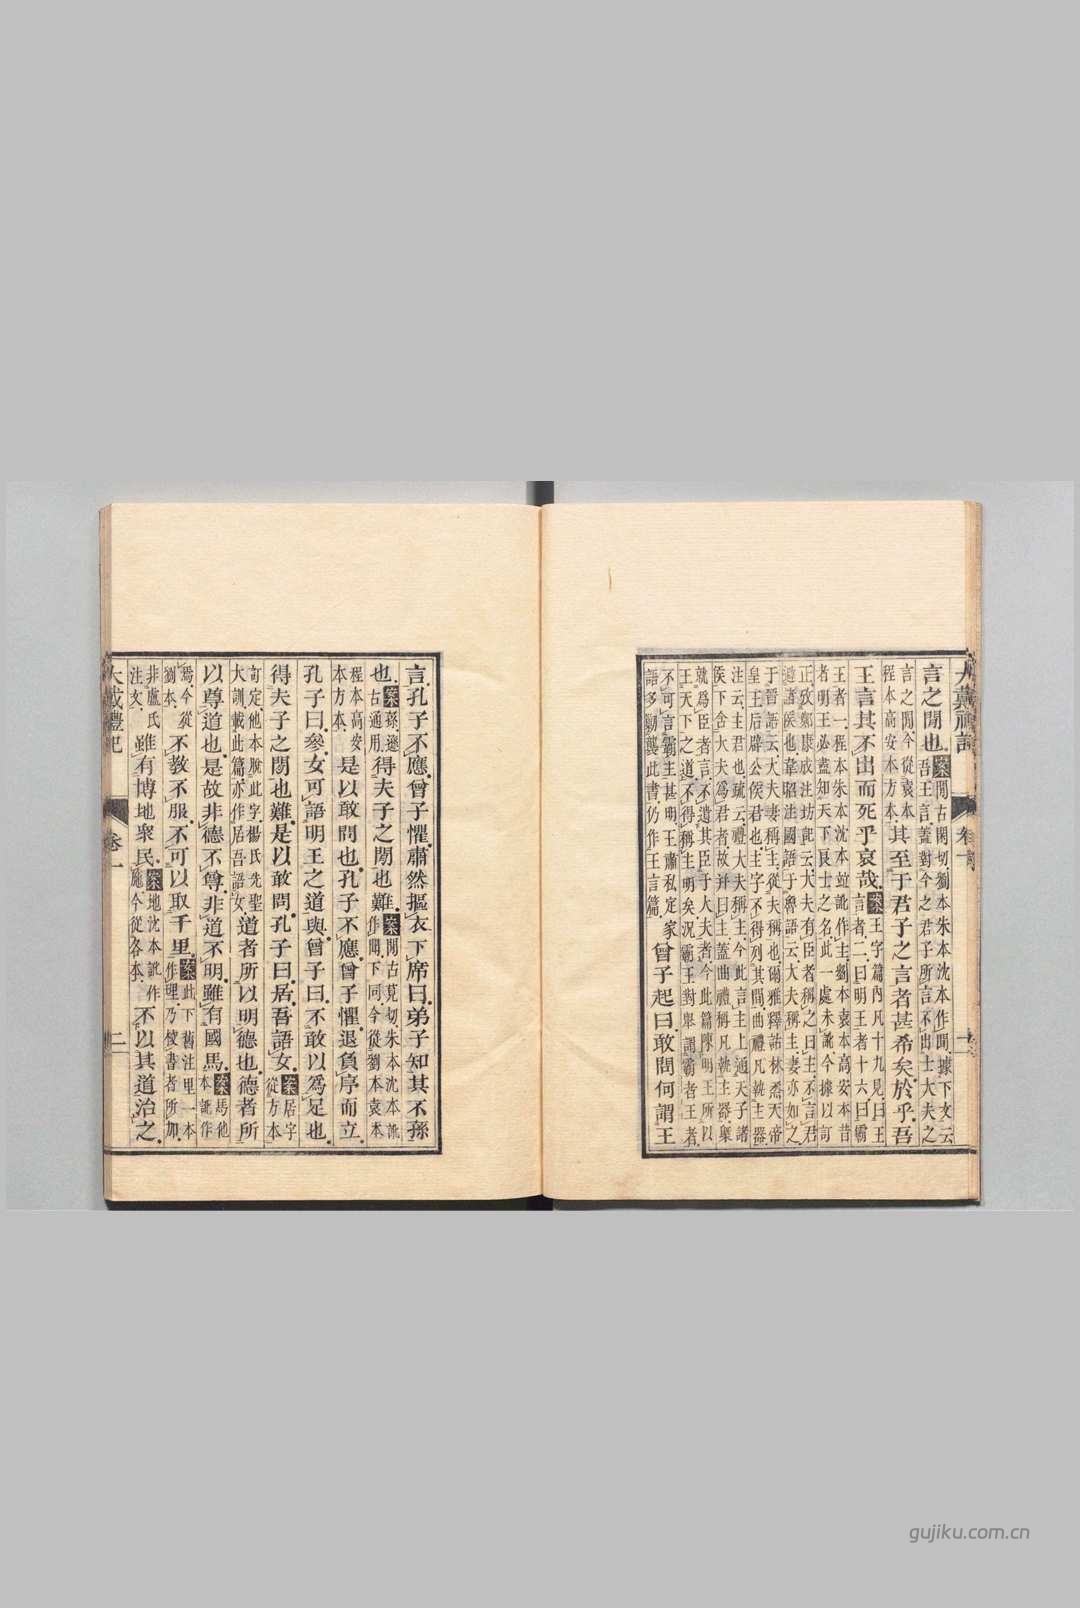 大戴禮記 卷一
言之閒也案閒古閑切劉本朱本沈本作聞據下文云
吾王言蓋對今之君子所言不出士大夫之
言之閒今從袁本
程本高安本方本其至于君子之言者甚希矣於乎吾
王言其不出而死乎哀哉案王字篇內凡十九見曰王
言者二曰明王者十六曰霸
王者一程本朱本沈本竝訛作主劉本袁本高安本昔
者明王必盡知天下良士之名此一處未訛今據以訂
正攷鄭康成注坊記云大夫有臣者稱之曰主不言君
避諸侯也韋昭注國語于魯語云大夫稱主妻亦如之
于晉語云大夫妻稱主從夫稱也爾雅釋詁林烝天帝
皇王后辟公侯君也主字不得列其間曲禮凡執主器
注云主君也疏云禮大夫稱主今此言主上通天子諸
侯下含大夫爲君者故并曰主蓋曲禮稱凡執主器槩
就爲臣者言不遺其臣于大夫者今此篇陳明王所以
王天下之道不得稱主明矣況霸王對舉謂霸者王者
不可言霸主甚明王肅私定家
語多勦襲此書仍作王言篇曾子起曰敢問何謂王
言孔子不應曾子懼肅然摳衣下席曰弟子知其不孫
也案孫遜
古通用得夫子之閒也難案閒古莧切朱本沈本訛
作聞下同今從劉本袁本
程本高安
本方本是以敢問也孔子不應曾子懼退負序而立
孔子曰參女可語明王之道與曾子曰不敢以爲足也
得夫子之閒也難是以敢問孔子曰居吾語女案居字
從方本
訂定他本脫此字楊氏先聖
大訓載此篇亦作居吾語女道者所以明德也德者所
以尊道也是故非德不尊非道不明雖有國馬案馬他
本訛作
焉今從
劉本不教不服不可以取千里案此下舊注里一本
作理乃校書者所加
非盧氏
注文雖有博地衆民案地沈本訛作
施今從各本不以其道治之
大戴禮記 卷一 二
gujiku.com.cn